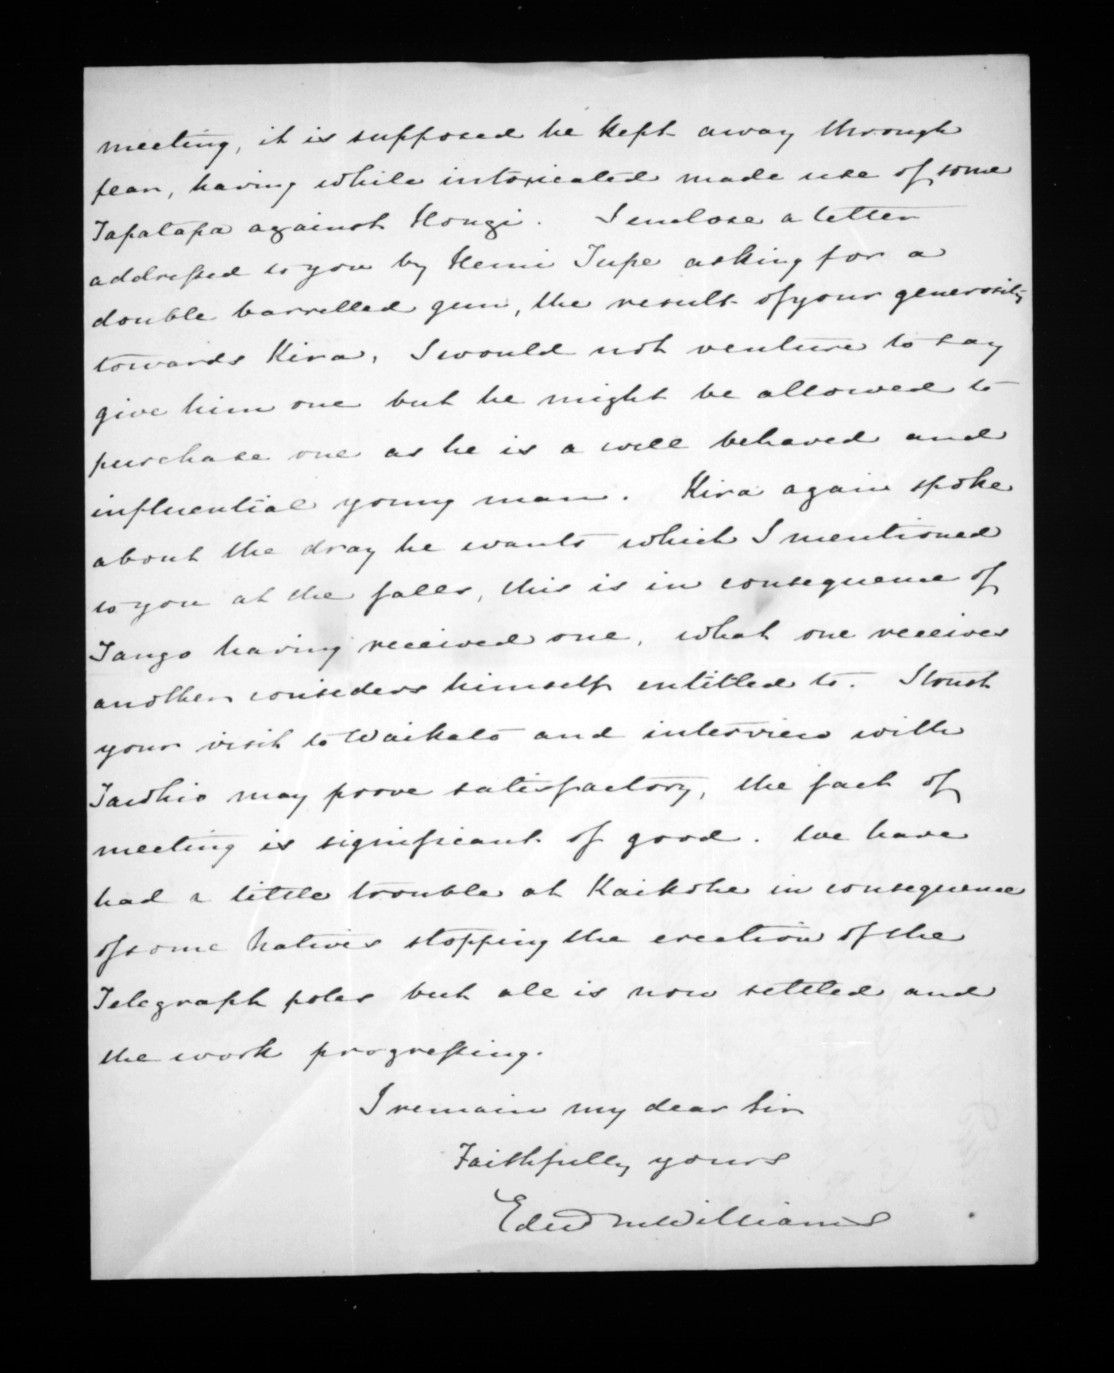 meeting, it is supposed he kept away through
fear, having while intoxicated made use of some
Tapatapa against Hongi. I enclose a letter
addressed to you by Hemi Tupe asking for a
double barrelled gun, the result of your generosity
towards Kira, I would not venture to say
give him one but he might be allowed to
purchase one as he is a well behaved and
influential young man. Kira again spoke
about the dray he wants which I mentioned
to you at the falls, this is in consequence of
Tango having received one, what one receives
another considers himself entitled to. I trust
your visit to Waikato and interview with
Tawhio may prove satisfactory, the fact of
meeting is significant of good. We have
had a little trouble at Kaikohe in consequence
of some Natives stopping the erection of the
Telegraph poles but all is now settled and
the work progressing.
I remain my dear Sir
Faithfully yours
Edwd M Williams